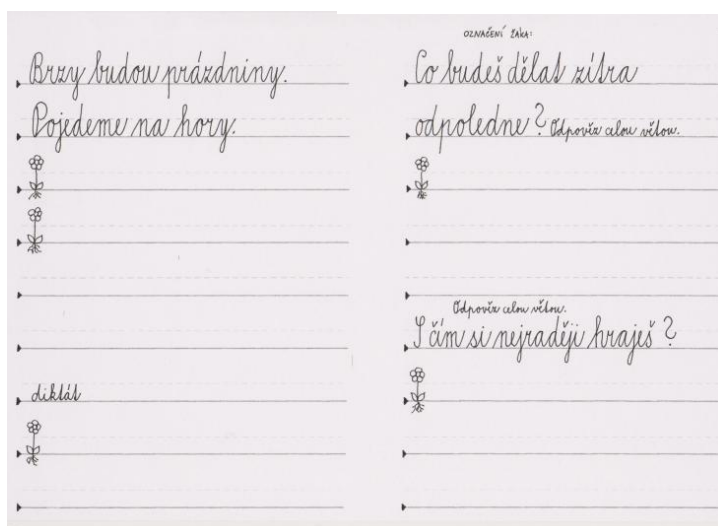 Brzy budou prázdniny.
Pojedeme na hory.
diktát
OZNAČENÍ ŽÁKA:
Co budeš dělat zítra
odpoledne? Odpověz celou větou.
Odpověz celou větou.
S čím si nejraději hraješ?